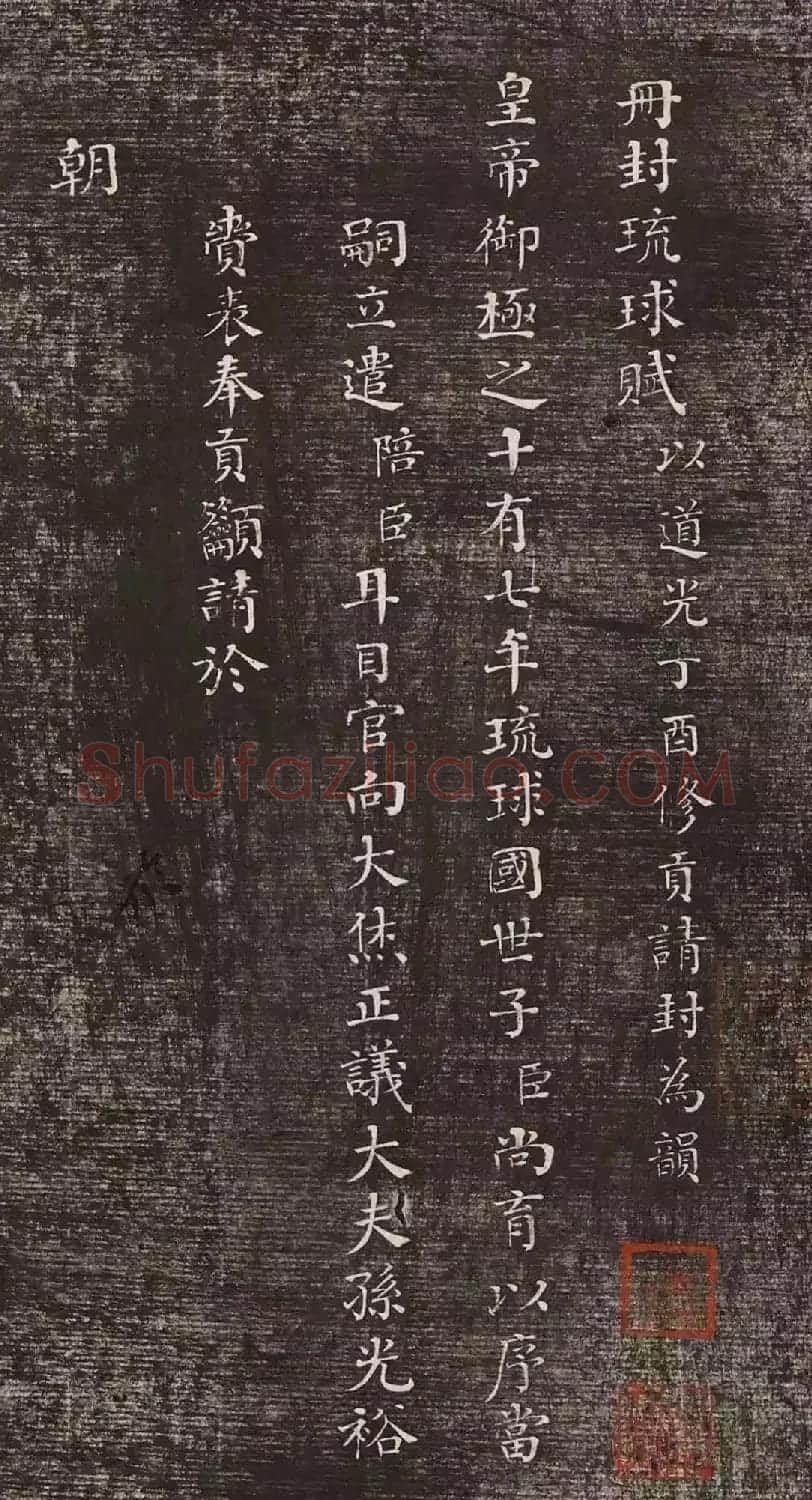 冊封琉球賦以道光丁酉修貢請封為韻
皇帝御極之十有七年琉球國世子臣尚育以序當
嗣立遣陪臣耳目官向大烋正議大夫孫光裕
賫表奉貢籲請於
朝
Shufaziliao.COM